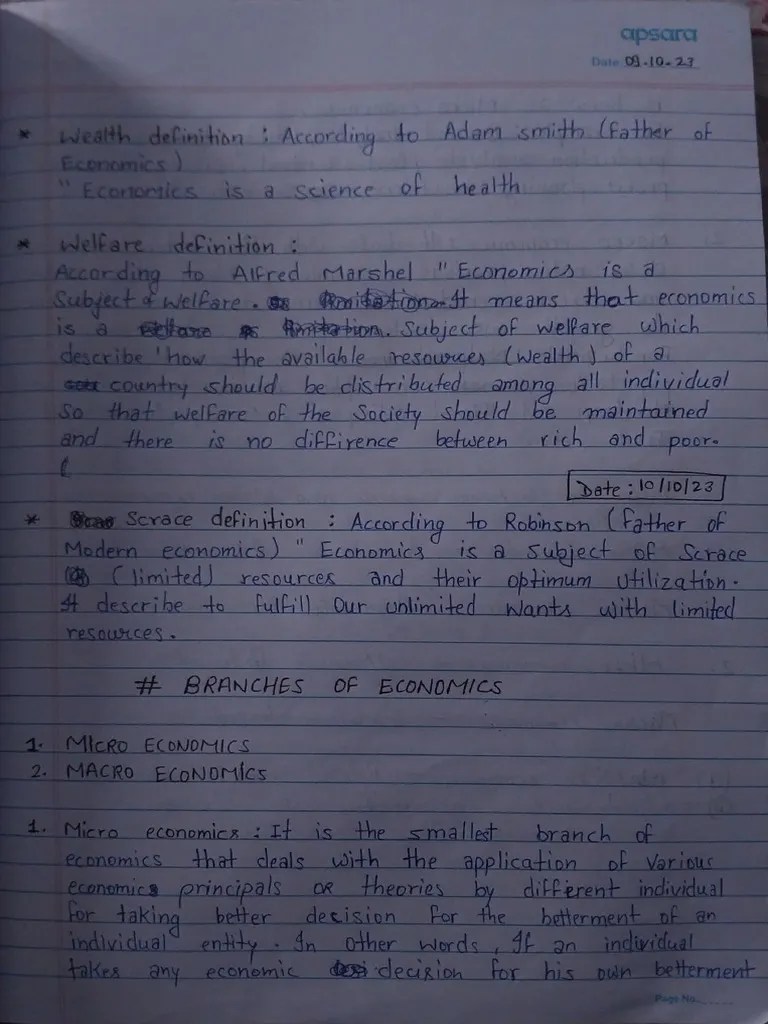 apsara
Date 09-10-23
* Wealth definition : According to Adam smith (Father of
Economics)
" Economics is a science of health
* Welfare definition :
According to Alfred Marshel " Economics is a
Subject of Welfare. It means that economics
is a Subject of welfare which
describe 'how the available resources (wealth) of a
country should be distributed among all individual
So that welfare of the Society should be maintained
and there is no diffirence between rich and poor.
Date : 10/10/23
* Scrace definition : According to Robinson (Father of
Modern economics) " Economics is a subject of Scrace
(limited) resources and their optimum utilization.
It describe to fulfill our unlimited wants with limited
resources.
# BRANCHES OF ECONOMICS
1. MICRO ECONOMICS
2. MACRO ECONOMICS
1. Micro economics : It is the smallest branch of
economics that deals with the application of various
economics principals or theories by different individual
for taking better decision for the betterment of an
individual entity. In other words, If an individual
takes any economic decision for his own betterment
Page No.